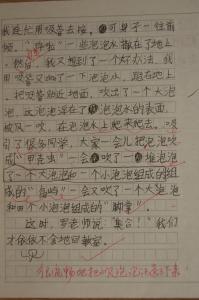 我连忙用吸管去接。可身子一往前
倾，"哗啦"一些泡泡水撒在了地上
。然后，我又想到了一个好办法，我
用吸管又吸了一下泡泡水，蹲在地上，
把吸管贴近地面，吹出了一个大泡
泡，这泡泡浮在了泡泡水的表面，
被风一吹，在泡泡水上爬来爬去。吸
引了很多同学，大家一会儿把泡泡吹
成"甲壳虫"一会吹了一堆泡泡
了一个大泡泡和一个小泡泡组成的组
成的"蜗牛"一会又吹了一个大泡泡
和四个小泡泡组成的"脚掌"
这时，罗老师说"集合！"我们
才依依不舍地回教室。